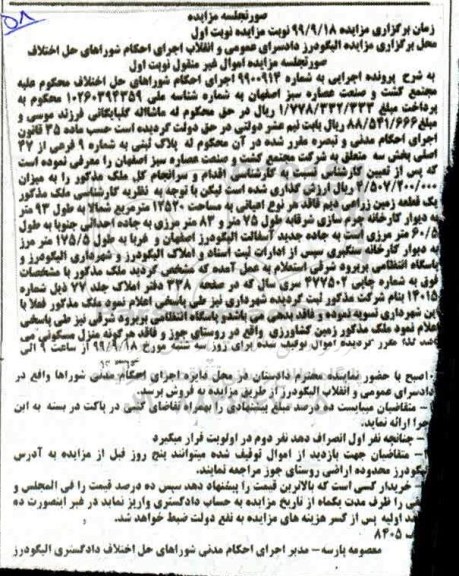 ۵۸
صورتجلسه مزایده
زمان برگزاری مزایده ۹۹/۹/۱۸ نوبت مزایده نوبت اول
محل برگزاری مزایده الیگودرز دادسرای عمومی و انقلاب اجرای احکام شوراهای حل اختلاف
صورتجلسه مزایده اموال غیر منقول نوبت اول
به شرح پرونده اجرایی به شماره ۹۹۰۰۹۱۴ اجرای احکام شوراهای حل اختلاف محکوم علیه
مجتمع کشت و صنعت عصاره سبز اصفهان به شماره شناسه ملی ۱۰۲۶۰۳۹۴۳۵۹ محکوم به
پرداخت مبلغ ۱/۷۷۸/۳۳۲/۳۳۳ ریال در حق محکوم له ماشااله گلپایگانی فرزند موسی و
مبلغ ۸۸/۵۴۱/۶۶۶ ریال بابت نیم عشر دولتی در حق دولت گردیده است حسب ماده ۳۵ قانون
اجرای احکام مدنی و تبصره مقرر شده در آن محکوم له پلاک ثبتی به شماره ۹ فرعی از ۴۷
اصلی بخش سه متعلق به شرکت مجتمع کشت و صنعت عصاره سبز اصفهان را معرفی نموده است
که پس از تعیین کارشناس نسبت به کارشناسی اقدام و سرانجام کل ملک مذکور را به میزان
۴/۵۰۷/۲۰۰/۰۰۰ ریال ارزش گذاری شده است لیکن با توجه به نظریه کارشناسی ملک مذکور
یک قطعه زمین زراعی دیم فاقد هر نوع اعیانی به مساحت ۱۲۵۲۰ مترمربع شمالا به طول ۹۳ متر
به دیوار کارخانه چرم سازی شرقا به طول ۷۵ متر و ۸۳ متر مرزی به جاده احداثی جنوبا به طول
۶۰/۵ متر مرزی است به جاده جدید آسفالت الیگودرز اصفهان و غربا به طول ۱۷۵/۵ متر مرز
به دیوار کارخانه سنگبری سپس از ادارات ثبت اسناد و املاک الیگودرز و شهرداری الیگودرز و
پاسگاه انتظامی بربرود شرقی استعلام به عمل آمده که مشخص گردید ملک مذکور با مشخصات
فوق به شماره چاپی ۴۷۷۵۰۲ سری سال که در صفحه ۳۳۸ دفتر املاک جلد ۷۷ ذیل شماره
۱۴۰۱۵ بنام شرکت مذکور ثبت گردیده شهرداری نیز طی پاسخی اعلام نمود ملک مذکور فعلا با
این شهرداری تسویه نموده و فاقد بدهی می باشد و پاسگاه انتظامی بربرود شرقی نیز طی پاسخی
اعلام نمود ملک مذکور زمین کشاورزی واقع در روستای جوز و فاقد هرگونه منزل مسکونی می
باشد لذا مقرر گردیده اموال توقیف شده برای روز سه شنبه مورخ ۹۹/۹/۱۸ از ساعت ۹ الی
۱۰ صبح با حضور نماینده محترم دادستان در محل دایره اجرای احکام مدنی شوراها واقع در
دادسرای عمومی و انقلاب الیگودرز از طریق مزایده به فروش برسد.
- متقاضیان میبایست ده درصد مبلغ پیشنهادی را بهمراه تقاضای کتبی در پاکت در بسته به این
اجرا ارائه نماید.
- چنانچه نفر اول انصراف دهد نفر دوم در اولویت قرار میگیرد
- متقاضیان جهت بازدید از اموال توقیف شده میتوانند پنج روز قبل از مزایده به آدرس
الیگودرز محدوده اراضی روستای جوز مراجعه نمایند.
- خریدار کسی است که بالاترین قیمت را پیشنهاد دهد سپس ده درصد قیمت را فی المجلس و
را ظرف مدت یکماه از تاریخ مزایده به حساب دادگستری واریز نماید در غیر اینصورت ده
درصد اولیه پس از کسر هزینه های مزایده به نفع دولت ضبط خواهد شد.
ف ۸۴۰۵
معصومه پارسه - مدیر اجرای احکام مدنی شوراهای حل اختلاف دادگستری الیگودرز